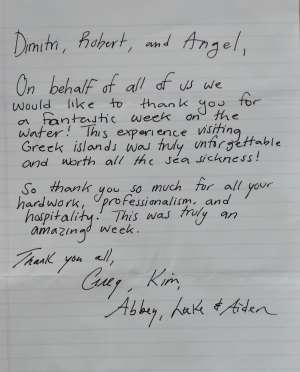 Dimitri, Robert, and Angel,
On behalf of all of us we
would like to thank you for
a fantastic week on the
water! This experience visiting
Greek islands was truly unforgettable
and worth all the sea sickness!
So thank you so much for all your
hardwork, professionalism, and
hospitality! This was truly an
amazing week.
Thank you all,
Greg, Kim,
Abbey, Luke & Aiden